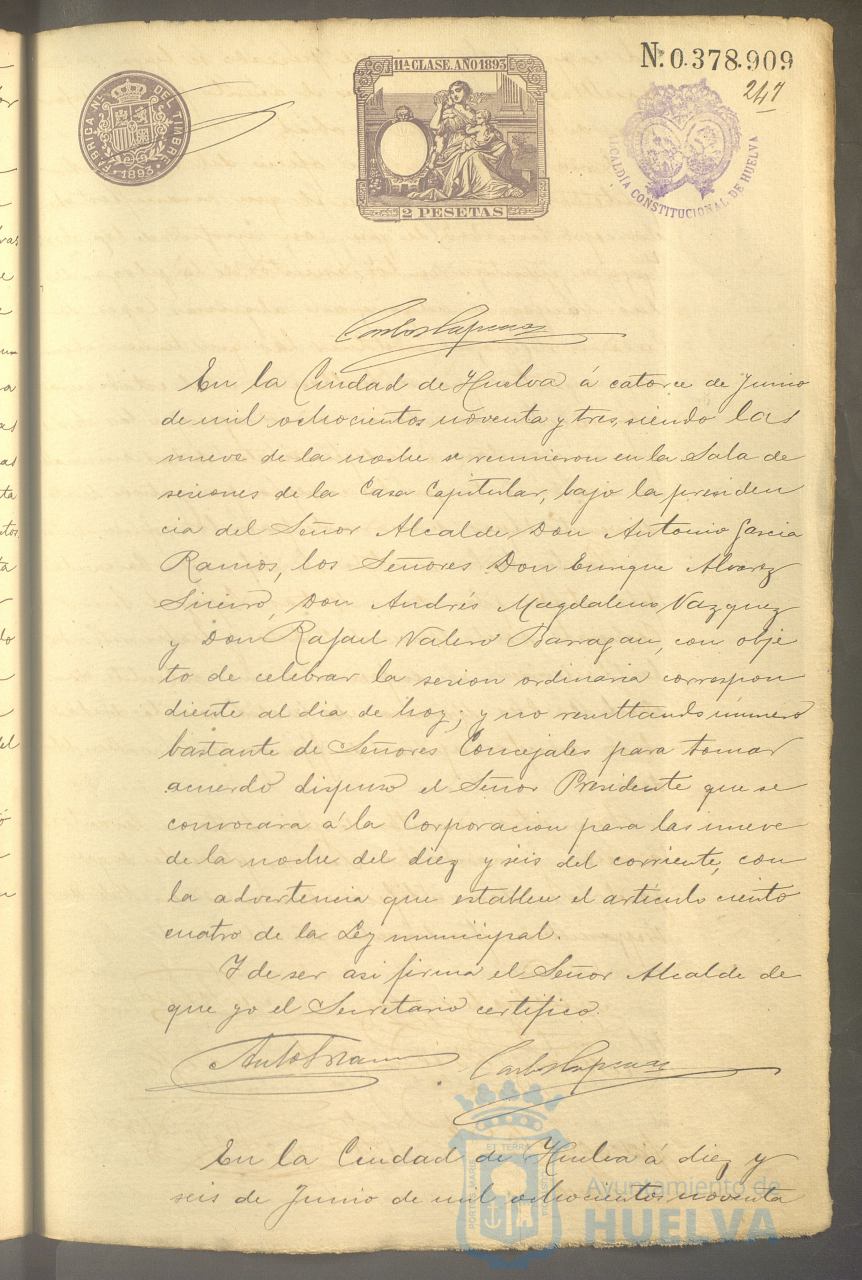 11ª CLASE. AÑO 1893
Nº 0.378.909
247
FÁBRICA NL. DEL TIMBRE
1893
2 PESETAS
ALCALDÍA CONSTITUCIONAL DE HUELVA
En la Ciudad de Huelva á catorce de Junio
de mil ochocientos noventa y tres, siendo las
nueve de la noche se reunieron en la Sala de
sesiones de la Casa Capitular, bajo la presiden
cia del Señor Alcalde Don Antonio Garcia
Ramos, los Señores Don Enrique Alvarez
Don Andrés Magdaleno Vazquez
y Don Rafael Valero Barragan, con obje
to de celebrar la sesion ordinaria correspon
diente al dia de hoy; y no resultando número
bastante de Señores Concejales para tomar
acuerdo dispuso el Señor Presidente que se
convocara á la Corporacion para las nueve
de la noche del diez y seis del corriente, con
la advertencia que establece el articulo ciento
cuatro de la Ley municipal.
Y de ser asi firma el Señor Alcalde de
que yo el Secretario certifico.
En la Ciudad de Huelva á diez y
seis de Junio de mil ochocientos noventa
PORTUS MARIS ET TERRAE CUSTODIA
Ayuntamiento de
HUELVA